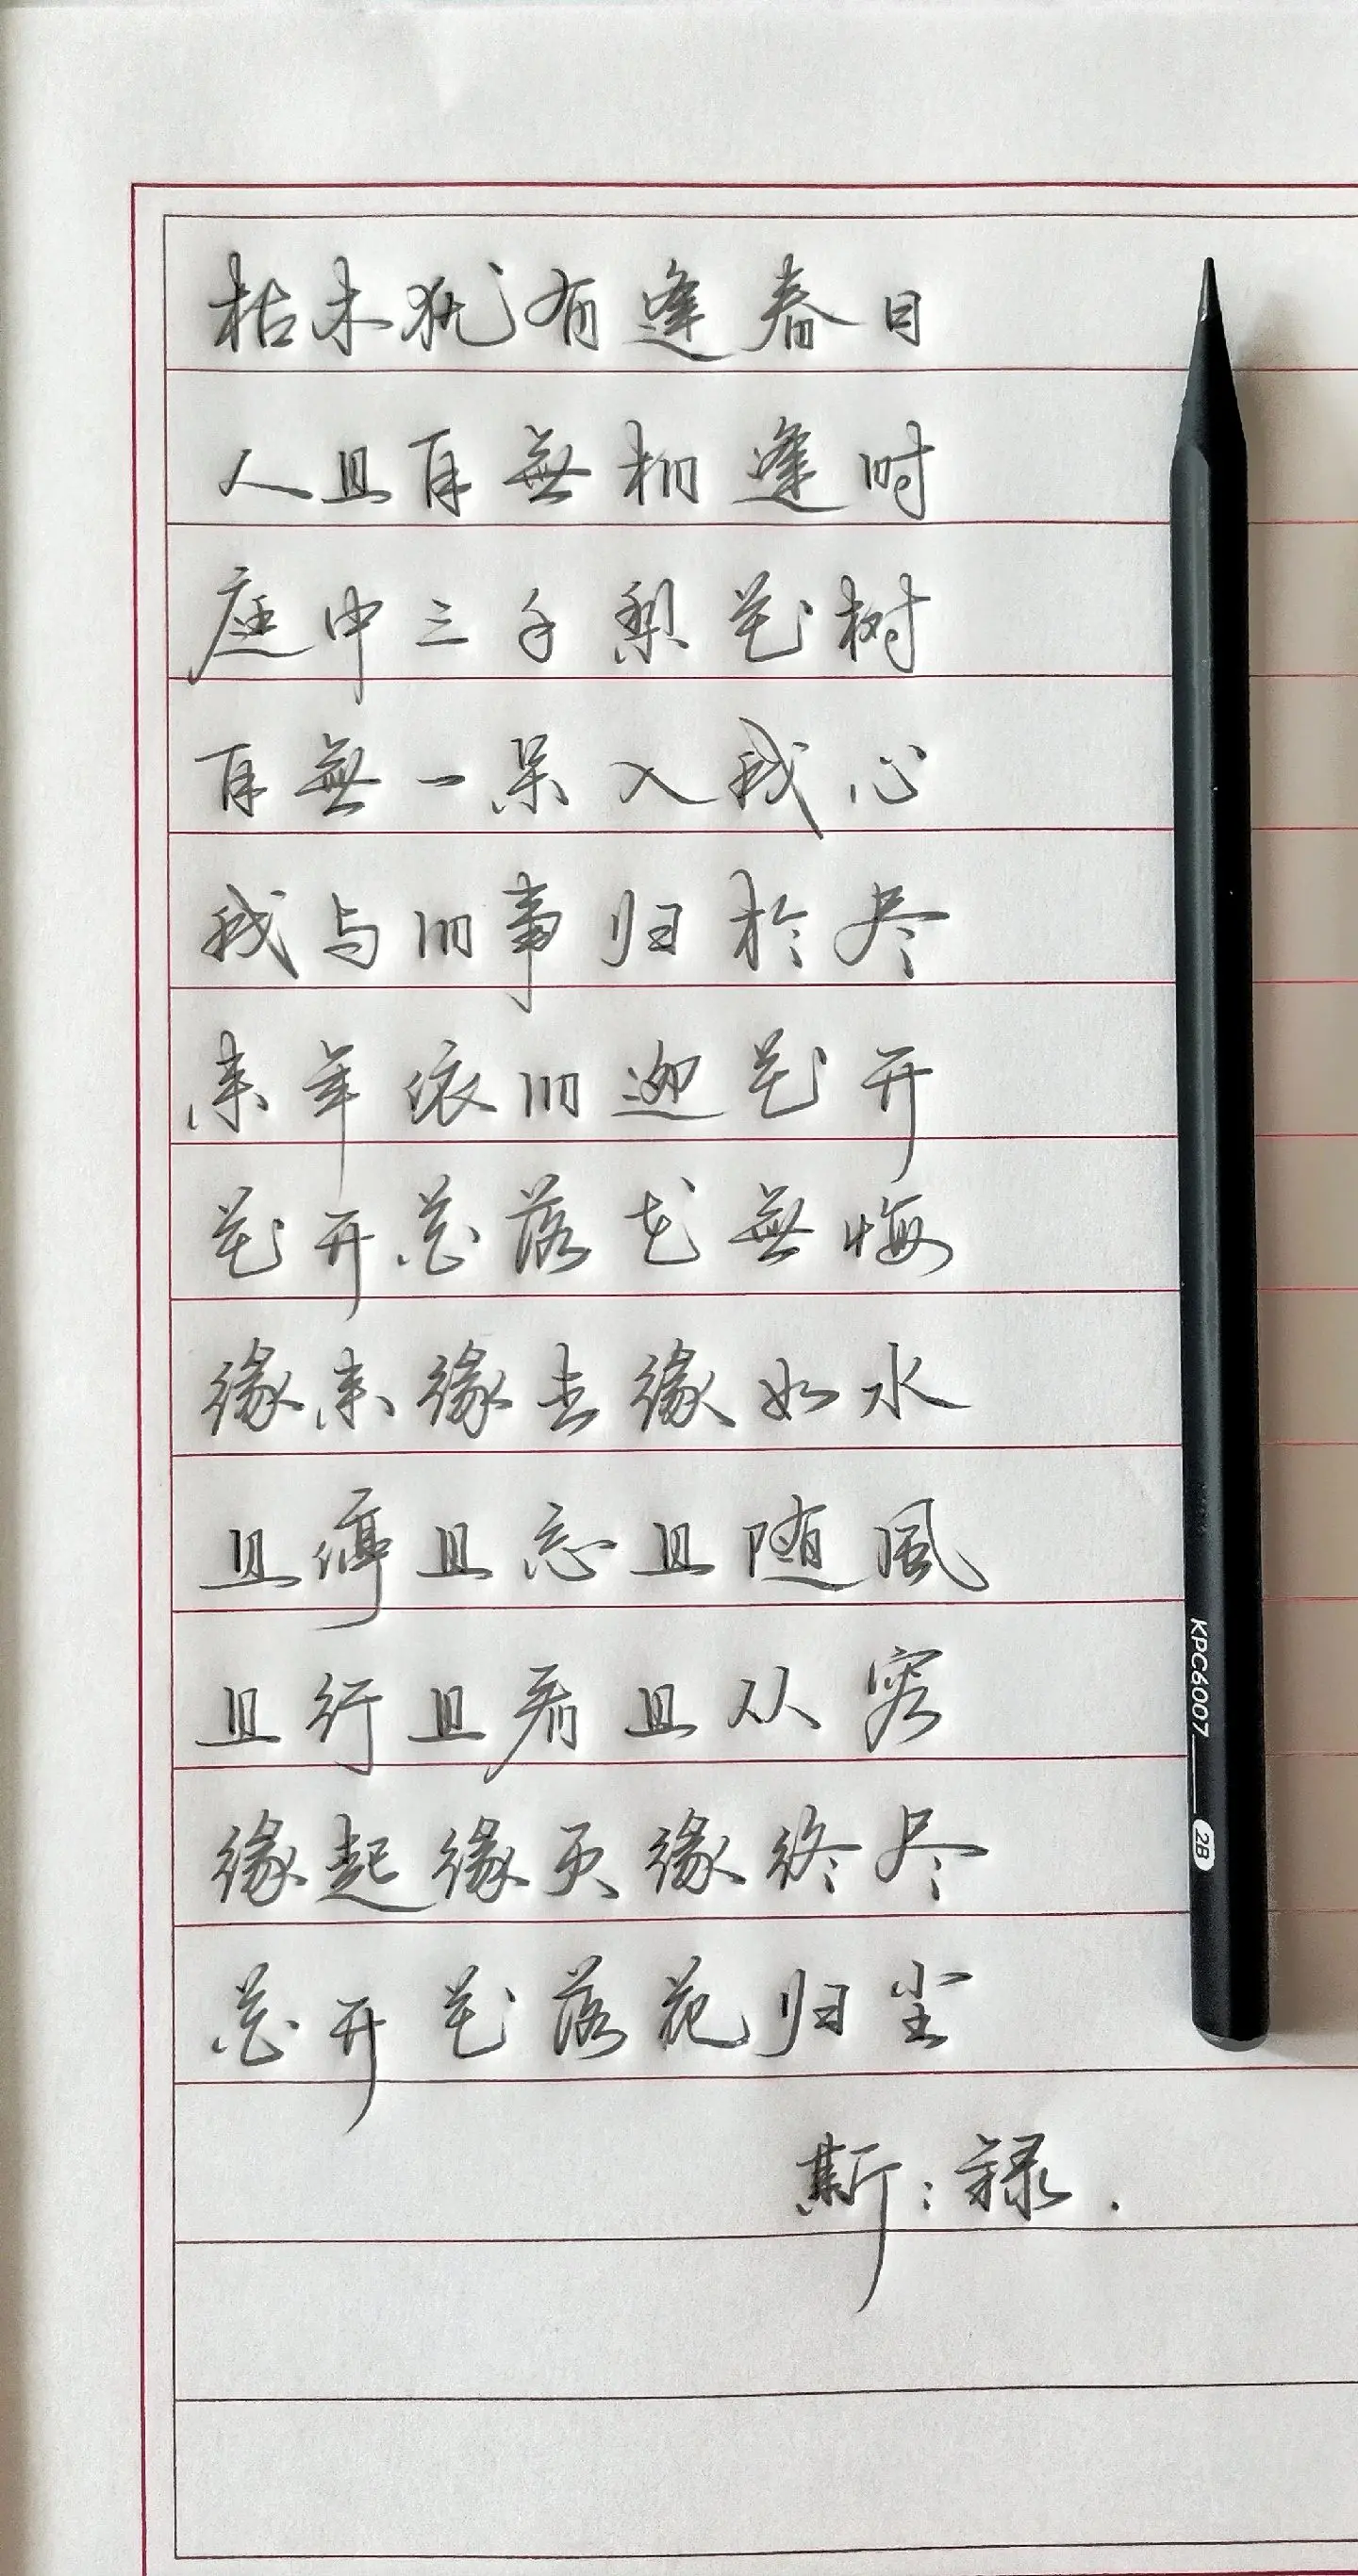 枯木犹有逢春日
人且再無相逢时
庭中三千梨花树
再無一朵入我心
我与旧事归於尽
来年依旧迎花开
花开花落花無悔
缘来缘去缘如水
且停且忘且随風
且行且看且从容
缘起缘灭缘终尽
花开花落花归尘
斯：禄.
KPC6007 2B